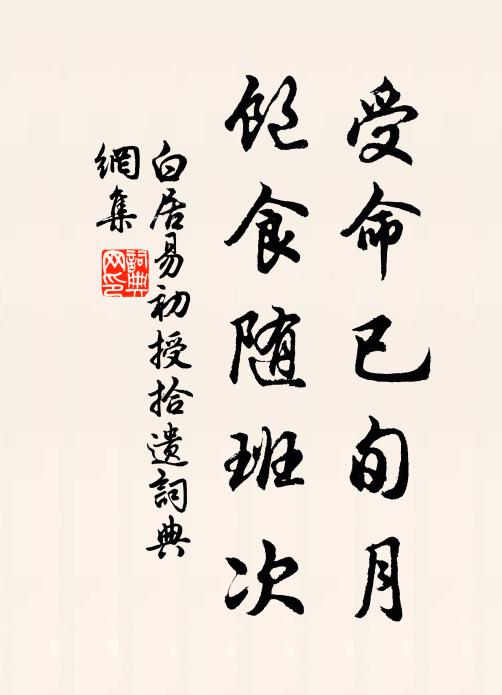 受命已旬月
飽食随班次
白居易初授拾遺詞典
網集
詞典
网印